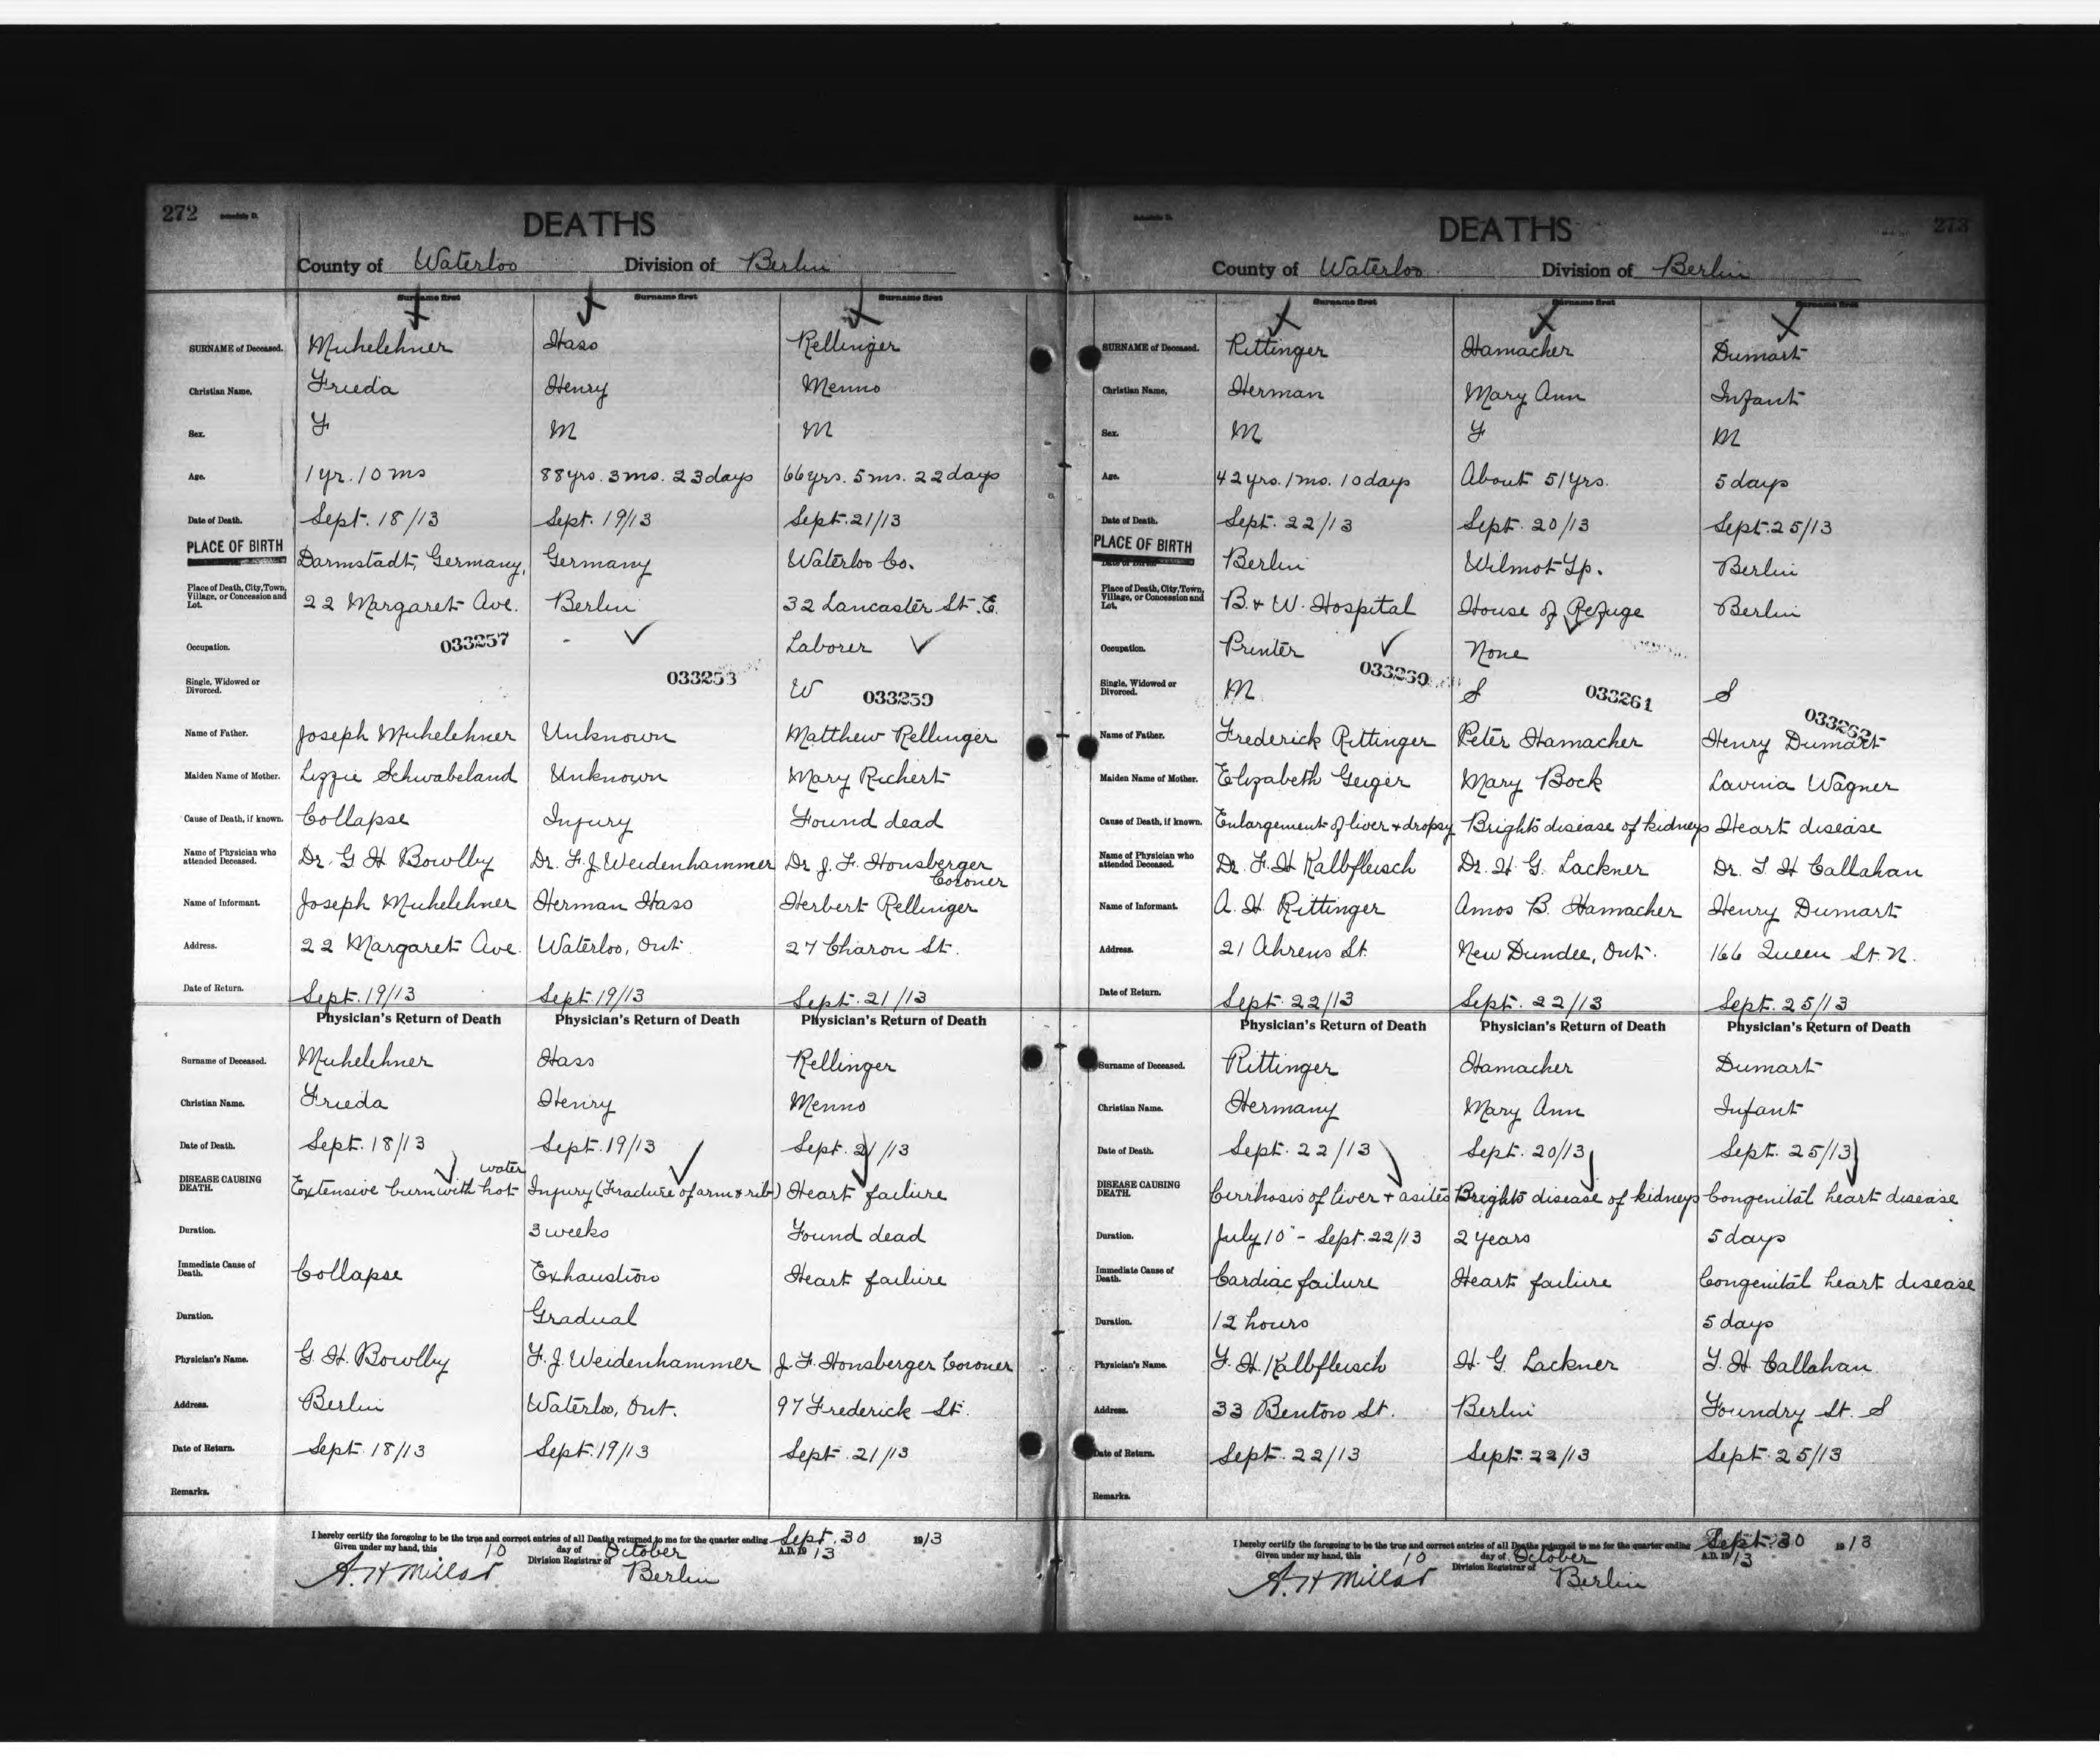 272
Schedule D.
DEATHS
County of Waterloo Division of Berlin
Surname first Surname first Surname first
SURNAME of Deceased. Muhelehner Hass Rellinger
Christian Name. Frieda Henry Menno
Sex. F M M
Age. 1 yr. 10 ms 88 yrs. 3 ms. 23 days 66 yrs. 5 ms. 22 days
Date of Death. Sept. 18/13 Sept. 19/13 Sept. 21/13
PLACE OF BIRTH Darmstadt, Germany, Germany Waterloo Co.
Place of Death, City, Town, Village, or Concession and Lot. 22 Margaret Ave. Berlin 32 Lancaster St. E.
Occupation. 033257 - Laborer
Single, Widowed or Divorced. 033258 W 033259
Name of Father. Joseph Muhelehner Unknown Matthew Rellinger
Maiden Name of Mother. Lizzie Schwabeland Unknown Mary Richert
Cause of Death, if known. Collapse Injury Found dead
Name of Physician who attended Deceased. Dr. G H Bowlby Dr. F. J. Weidenhammer Dr J. F. Honsberger Coroner
Name of Informant. Joseph Muhelehner Herman Hass Herbert Rellinger
Address. 22 Margaret Ave. Waterloo, Ont. 27 Charon St.
Date of Return. Sept. 19/13 Sept. 19/13 Sept. 21/13
Physician's Return of Death Physician's Return of Death Physician's Return of Death
Surname of Deceased. Muhelehner Hass Rellinger
Christian Name. Frieda Henry Menno
Date of Death. Sept. 18/13 Sept. 19/13 Sept. 21/13
DISEASE CAUSING DEATH. Extensive burn with hot water Injury (Fracture of arm & rib) Heart failure
Duration. 3 weeks Found dead
Immediate Cause of Death. Collapse Exhaustion Heart failure
Duration. Gradual
Physician's Name. G. H. Bowlby F. J. Weidenhammer J. F. Honsberger Coroner
Address. Berlin Waterloo, Ont. 97 Frederick St.
Date of Return. Sept 18/13 Sept. 19/13 Sept. 21/13
Remarks.
I hereby certify the foregoing to be the true and correct entries of all Deaths returned to me for the quarter ending Sept. 30 1913
Given under my hand, this 10 day of October A.D. 1913
A. H Millar Division Registrar of Berlin
Schedule D.
273
DEATHS
County of Waterloo Division of Berlin
Surname first Surname first Surname first
SURNAME of Deceased. Rittinger Hamacher Dumart
Christian Name. Herman Mary Ann Infant
Sex. M F M
Age. 42 yrs. 1 mo. 10 days About 51 yrs. 5 days
Date of Death. Sept. 22/13 Sept. 20/13 Sept. 25/13
PLACE OF BIRTH Berlin Wilmot Tp. Berlin
Place of Death, City, Town, Village, or Concession and Lot. B. & W. Hospital House of Refuge Berlin
Occupation. Printer None
Single, Widowed or Divorced. M 033260 S 033261 S
033262
Name of Father. Frederick Rittinger Peter Hamacher Henry Dumart
Maiden Name of Mother. Elizabeth Geiger Mary Bock Lavina Wagner
Cause of Death, if known. Enlargement of liver & dropsy Brights disease of kidneys Heart disease
Name of Physician who attended Deceased. Dr. F. H Kalbfleisch Dr. H. G. Lackner Dr. T. H Callahan
Name of Informant. A. H. Rittinger Amos B. Hamacher Henry Dumart
Address. 21 Ahrens St. New Dundee, Ont. 166 Queen St. N.
Date of Return. Sept. 22/13 Sept. 22/13 Sept. 25/13
Physician's Return of Death Physician's Return of Death Physician's Return of Death
Surname of Deceased. Rittinger Hamacher Dumart
Christian Name. Hermany Mary Ann Infant
Date of Death. Sept. 22/13 Sept. 20/13 Sept. 25/13
DISEASE CAUSING DEATH. Cirrhosis of liver & asites Brights disease of kidneys Congenital heart disease
Duration. July 10 - Sept. 22/13 2 years 5 days
Immediate Cause of Death. Cardiac failure Heart failure Congenital heart disease
Duration. 12 hours 5 days
Physician's Name. F. H. Kalbfleisch H. G. Lackner T. H. Callahan
Address. 33 Benton St. Berlin Foundry St. S
Date of Return. Sept. 22/13 Sept. 22/13 Sept. 25/13
Remarks.
I hereby certify the foregoing to be the true and correct entries of all Deaths returned to me for the quarter ending Sept. 30 1913
Given under my hand, this 10 day of October A.D. 1913
A. H Millar Division Registrar of Berlin